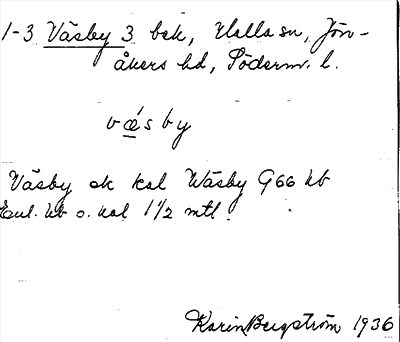 1-3 Väsby 3 bek, Halla sn, Jön-
åkers hd, Söderm. l.
væ´sby
Väsby ek kal Wäsby G66 hb
Enl. hb o. kal 1 1/2 mtl.
Karin Bergström 1936